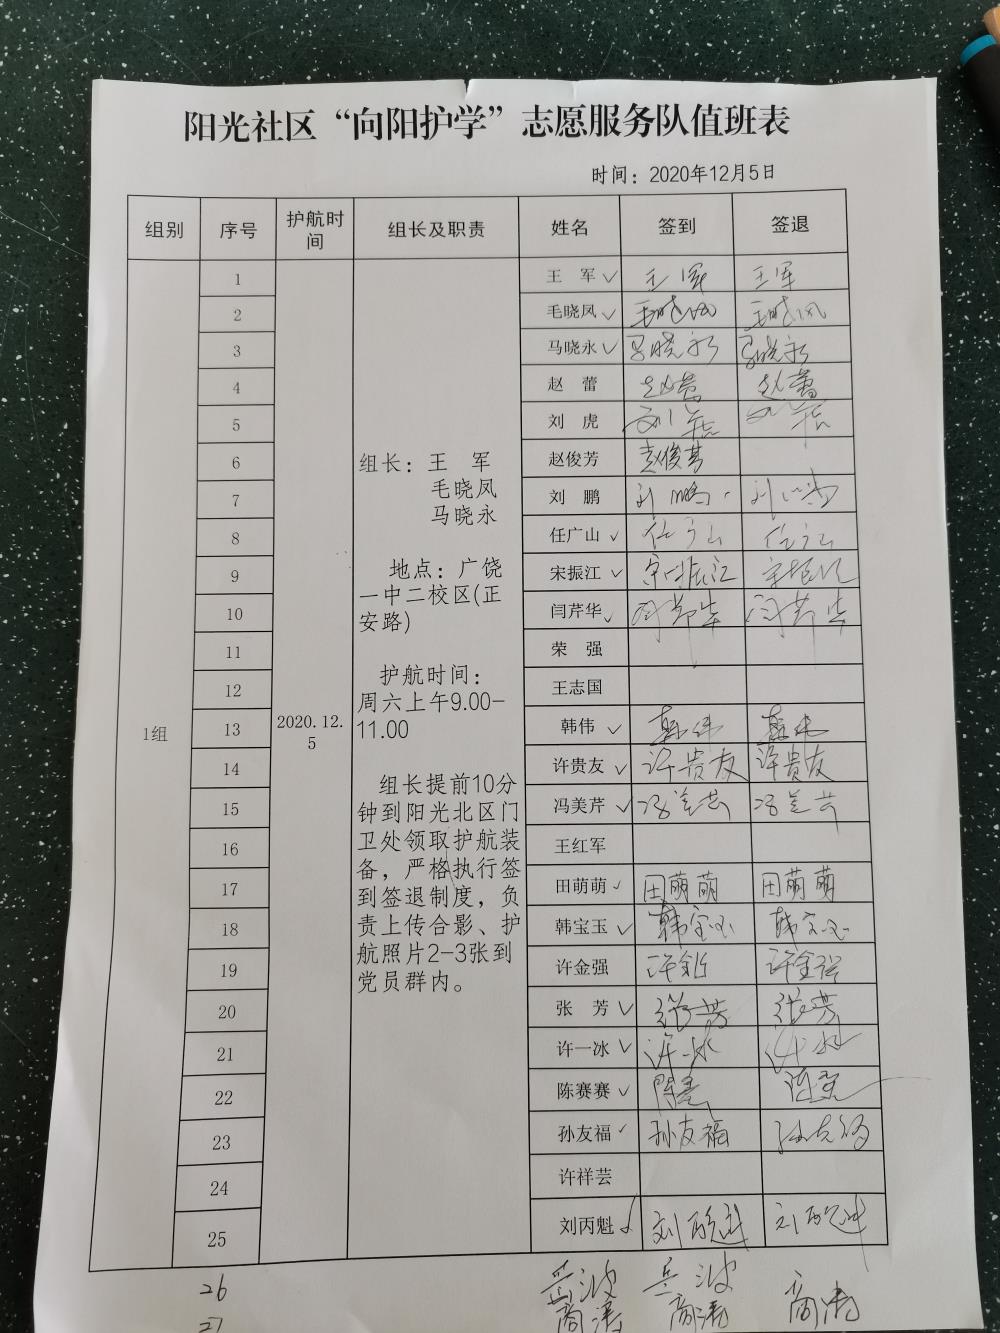 阳光社区“向阳护学”志愿服务队值班表
时间：2020年12月5日
组别 序号 护航时间 组长及职责 姓名 签到 签退
1组
2020.12.5
组长：王 军
毛晓凤
马晓永
地点：广饶
一中二校区(正
安路)
护航时间：
周六上午9.00-
11.00
组长提前10分
钟到阳光北区门
卫处领取护航装
备，严格执行签
到签退制度，负
责上传合影、护
航照片2-3张到
党员群内。
1 王 军 ✓ 王军 王军
2 毛晓凤 ✓ 毛晓凤 毛晓凤
3 马晓永 ✓ 马晓永 马晓永
4 赵 蕾 赵蕾 赵蕾
5 刘 虎 刘虎 刘虎
6 赵俊芳 赵俊芳
7 刘 鹏 刘鹏 刘鹏
8 任广山 ✓ 任广山 任广山
9 宋振江 ✓ 宋振江 宋振江
10 闫芹华 ✓ 闫芹华 闫芹华
11 荣 强
12 王志国
13 韩伟 ✓ 韩伟 韩伟
14 许贵友 ✓ 许贵友 许贵友
15 冯美芹 ✓ 冯美芹 冯美芹
16 王红军
17 田萌萌 ✓ 田萌萌 田萌萌
18 韩宝玉 ✓ 韩宝玉 韩宝玉
19 许金强 许金强 许金强
20 张 芳 ✓ 张芳 张芳
21 许一冰 ✓ 许一冰 许一冰
22 陈赛赛 ✓
23 孙友福 ✓ 孙友福 孙友福
24 许祥芸
25 刘丙魁 ✓ 刘丙魁 刘丙魁
26
27 商涛 商涛 商涛